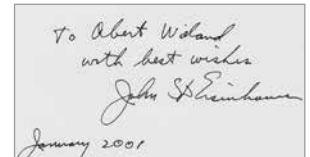 To Albert Wieland
with best wishes
John SD Eisenhower
January 2001